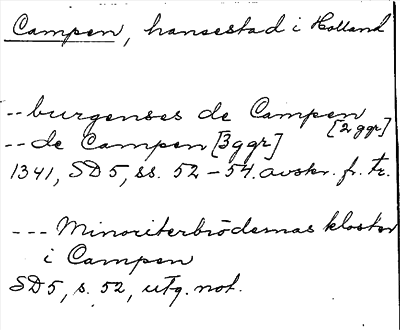 Campen, hansestad i Holland
-- burgenses de Campen
[2 ggr]
-- de Campen [3 ggr]
1341, SD 5, ss. 52 - 54. avskr. fr. tr.
--- Minoriterbrödernas kloster
i Campen
SD 5, s. 52, utg. not.